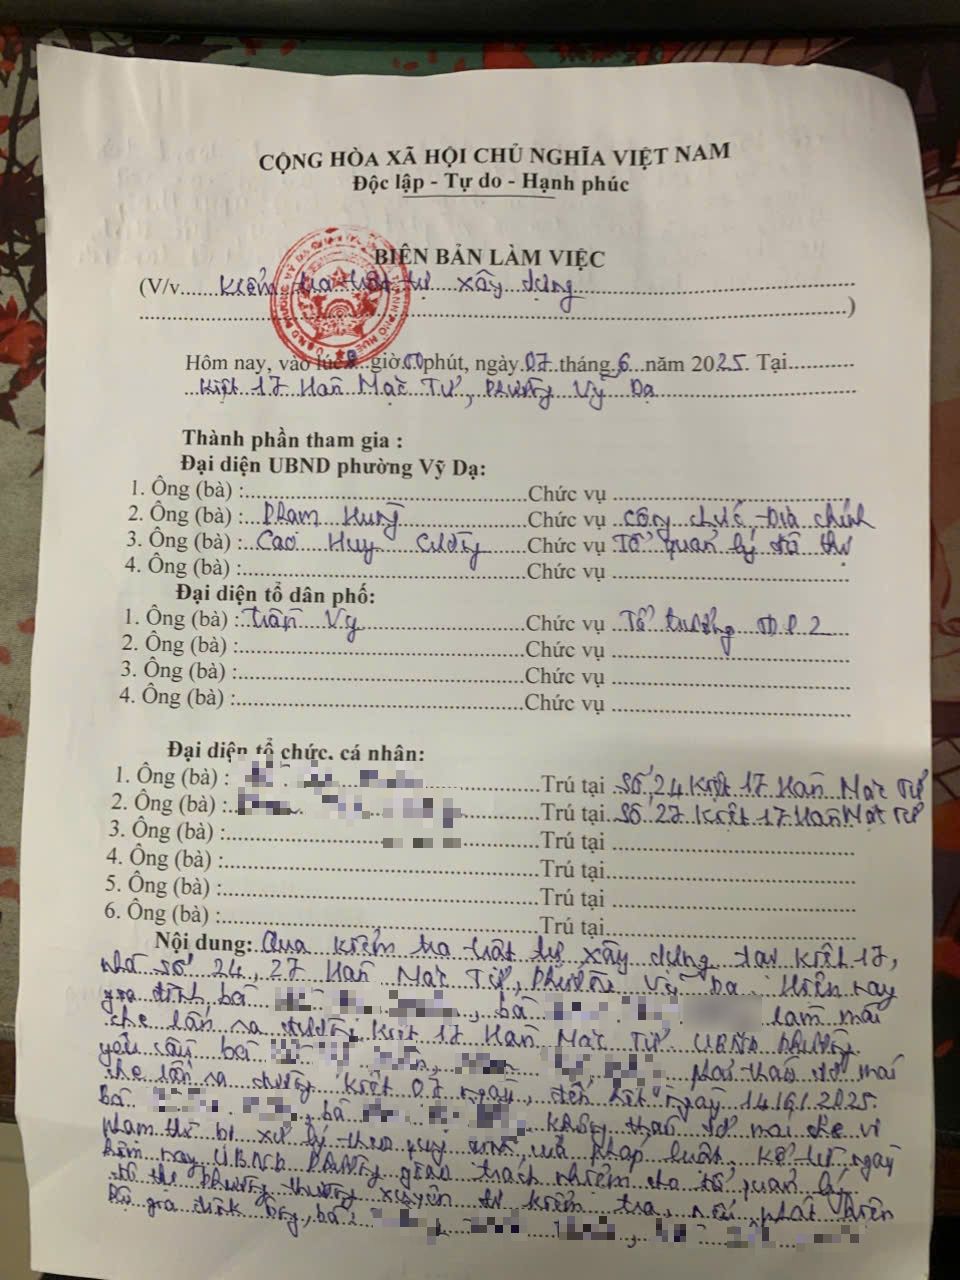 CỘNG HÒA XÃ HỘI CHỦ NGHĨA VIỆT NAM
Độc lập - Tự do - Hạnh phúc
BIÊN BẢN LÀM VIỆC
(V/v......Kiểm tra trật tự xây dựng......
......)
Hôm nay, vào lúc 8 giờ 00 phút, ngày 07 tháng 6 năm 2025. Tại............
Kiệt 17 Hàn Mạc Tử, Phường Vỹ Dạ
Thành phần tham gia :
Đại diện UBND phường Vỹ Dạ:
1. Ông (bà) :............Chức vụ ............
2. Ông (bà) : Phạm Hùng Chức vụ công chức Địa chính
3. Ông (bà) : Cao Huy Cường Chức vụ Tổ quản lý đô thị
4. Ông (bà) :............Chức vụ ............
Đại diện tổ dân phố:
1. Ông (bà) : Trần Vy Chức vụ Tổ trưởng TDP 2
2. Ông (bà) :............Chức vụ ............
3. Ông (bà) :............Chức vụ ............
4. Ông (bà) :............Chức vụ ............
Đại diện tổ chức, cá nhân:
1. Ông (bà) : Trú tại Số 24 Kiệt 17 Hàn Mạc Tử
2. Ông (bà) : Trú tại Số 27 Kiệt 17 Hàn Mạc Tử
3. Ông (bà) : Trú tại ............
4. Ông (bà) :............Trú tại............
5. Ông (bà) :............Trú tại............
6. Ông (bà) :............Trú tại............
Nội dung: Qua kiểm tra trật tự xây dựng tại kiệt 17,
nhà số 24, 27 Hàn Mạc Tử, Phường Vỹ Dạ. Hiện nay
gia đình bà , bà làm mái
che lấn ra đường kiệt 17 Hàn Mạc Tử. UBND Phường
yêu cầu bà phải tháo dỡ mái
che lấn ra đường kiệt 07 ngày, đến hết ngày 14/6/2025.
bà , bà không tháo dỡ mái che vi
phạm thì bị xử lý theo quy định của pháp luật. Kể từ ngày
hôm nay UBND Phường giao trách nhiệm cho tổ quản lý
đô thị phường thường xuyên đi kiểm tra, nếu phát hiện
hộ gia đình ông, bà : ,